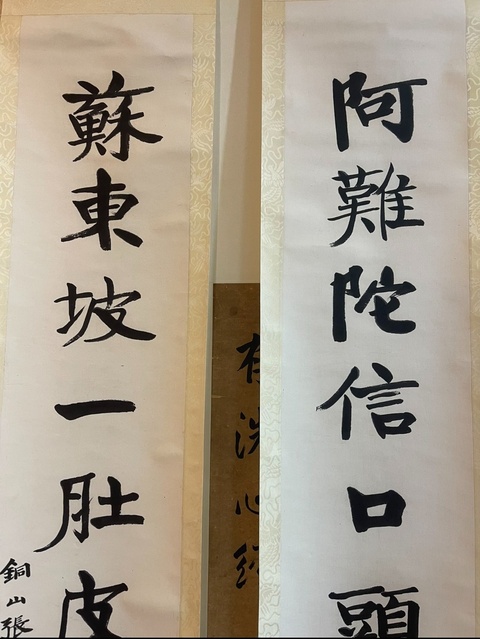 阿難陀信口頭
蘇東坡一肚皮
銅山張
洗心經